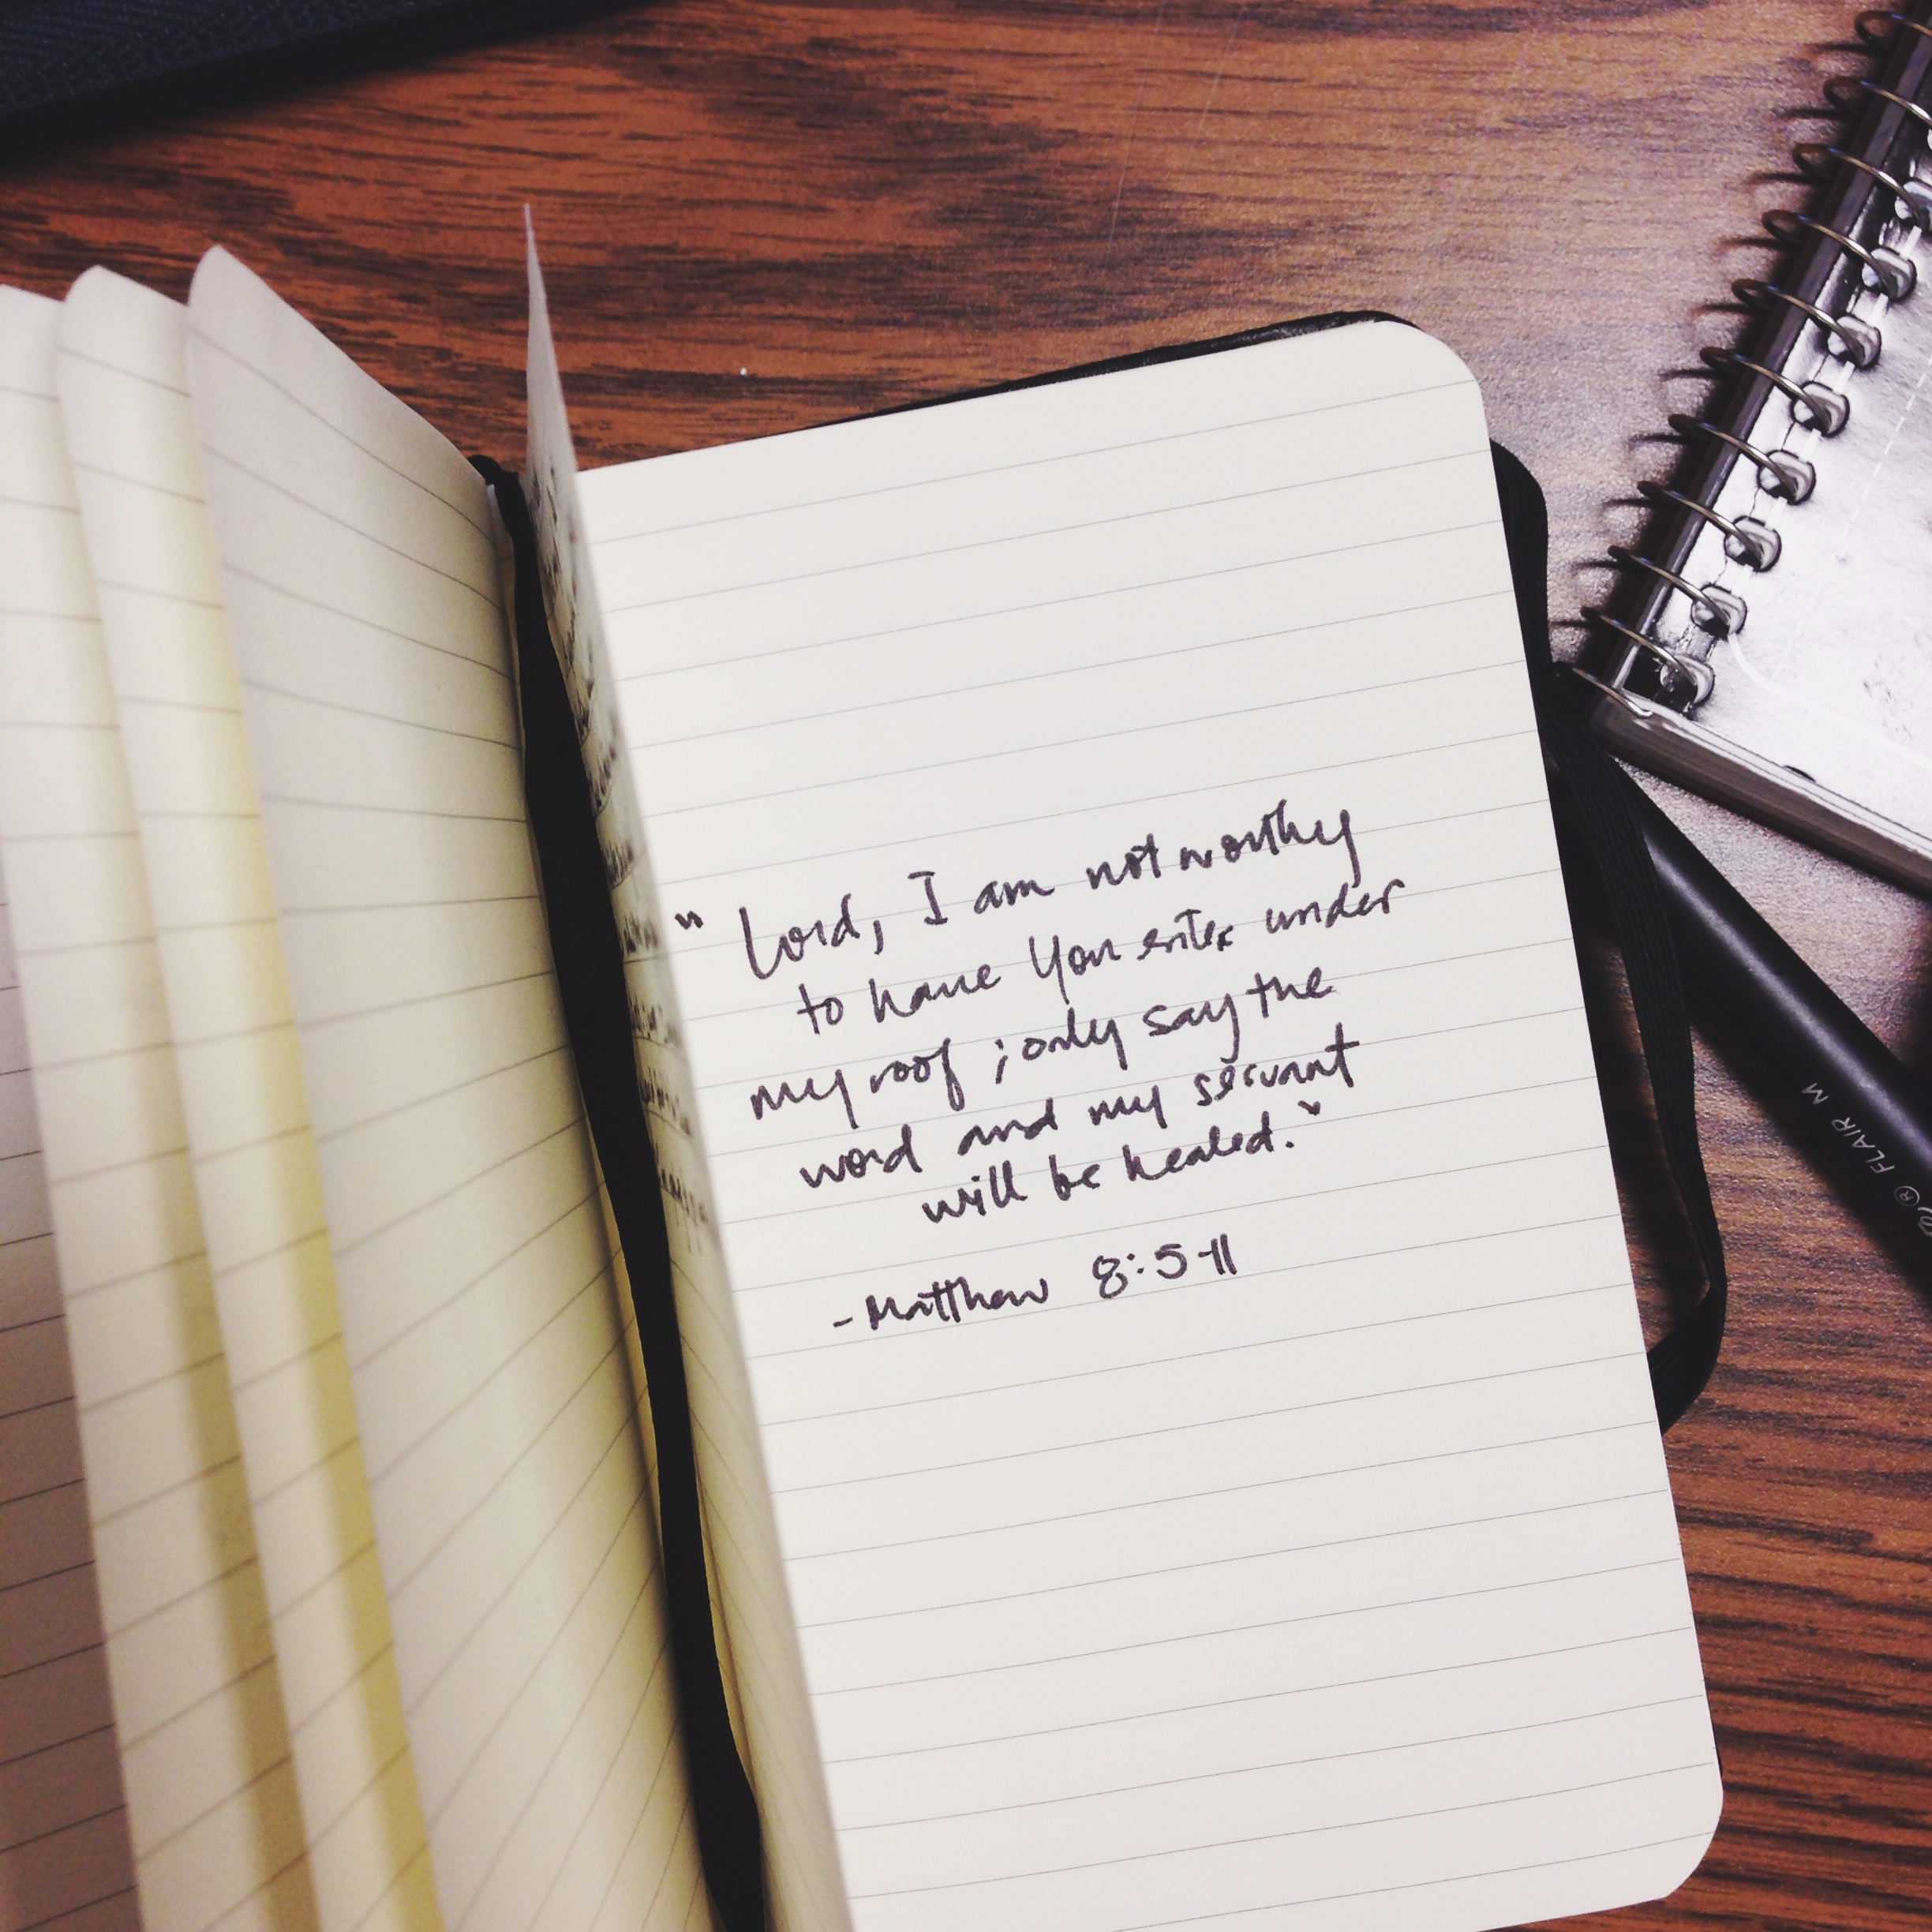 " Lord, I am not worthy
to have You enter under
my roof ; only say the
word and my servant
will be healed."
- Matthew 8:5-11
® FLAIR M